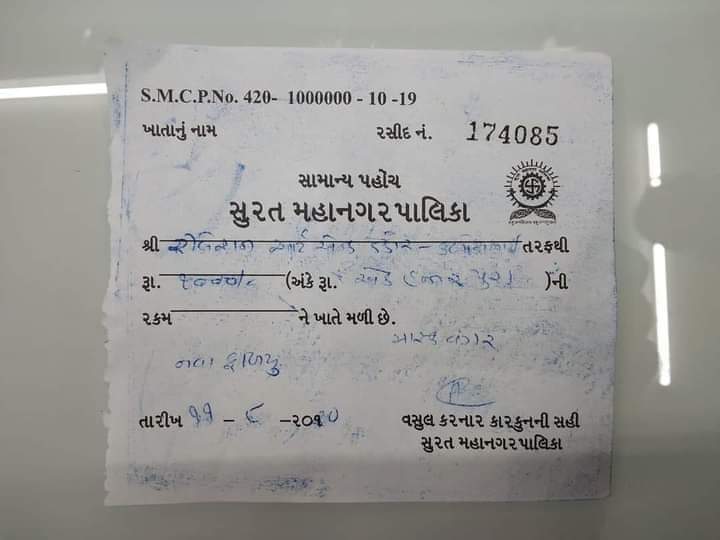 S.M.C.P.No. 420- 1000000 - 10 -19
ખાતાનું નામ રસીદ નં. 174085
સામાન્ય પહોંચ
સુરત મહાનગરપાલિકા
શ્રી તરફથી
રૂા. ૧૦૦૦/- (અંકે રૂા. એક હજાર પુરા )ની
રકમ ને ખાતે મળી છે.
માસ્ક વગર
નવા
તારીખ ૧૧ - ૬ -૨૦૨૦
વસુલ કરનાર કારકુનની સહી
સુરત મહાનગરપાલિકા